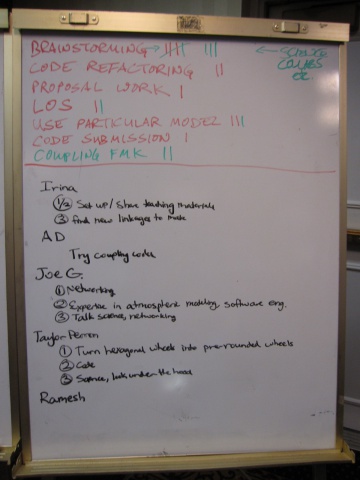 BRAINSTORMING → |||| |||
← SCIENCE
CODE REFACTORING ||
PROPOSAL WORK |
LOS ||
USE PARTICULAR MODEL |||
CODE SUBMISSION |
COUPLING FMK ||
Irina
1/2 Set up / Share teaching materials
③ find new linkages to make
AD
Try coupling codes
Joe G.
① Networking
② Expertise in atmosphere modeling, software eng.
③ Talk science, networking
Taylor Perron
① Turn hexagonal wheels into pre-rounded wheels
② Code
③ Science, look under the hood
Ramesh